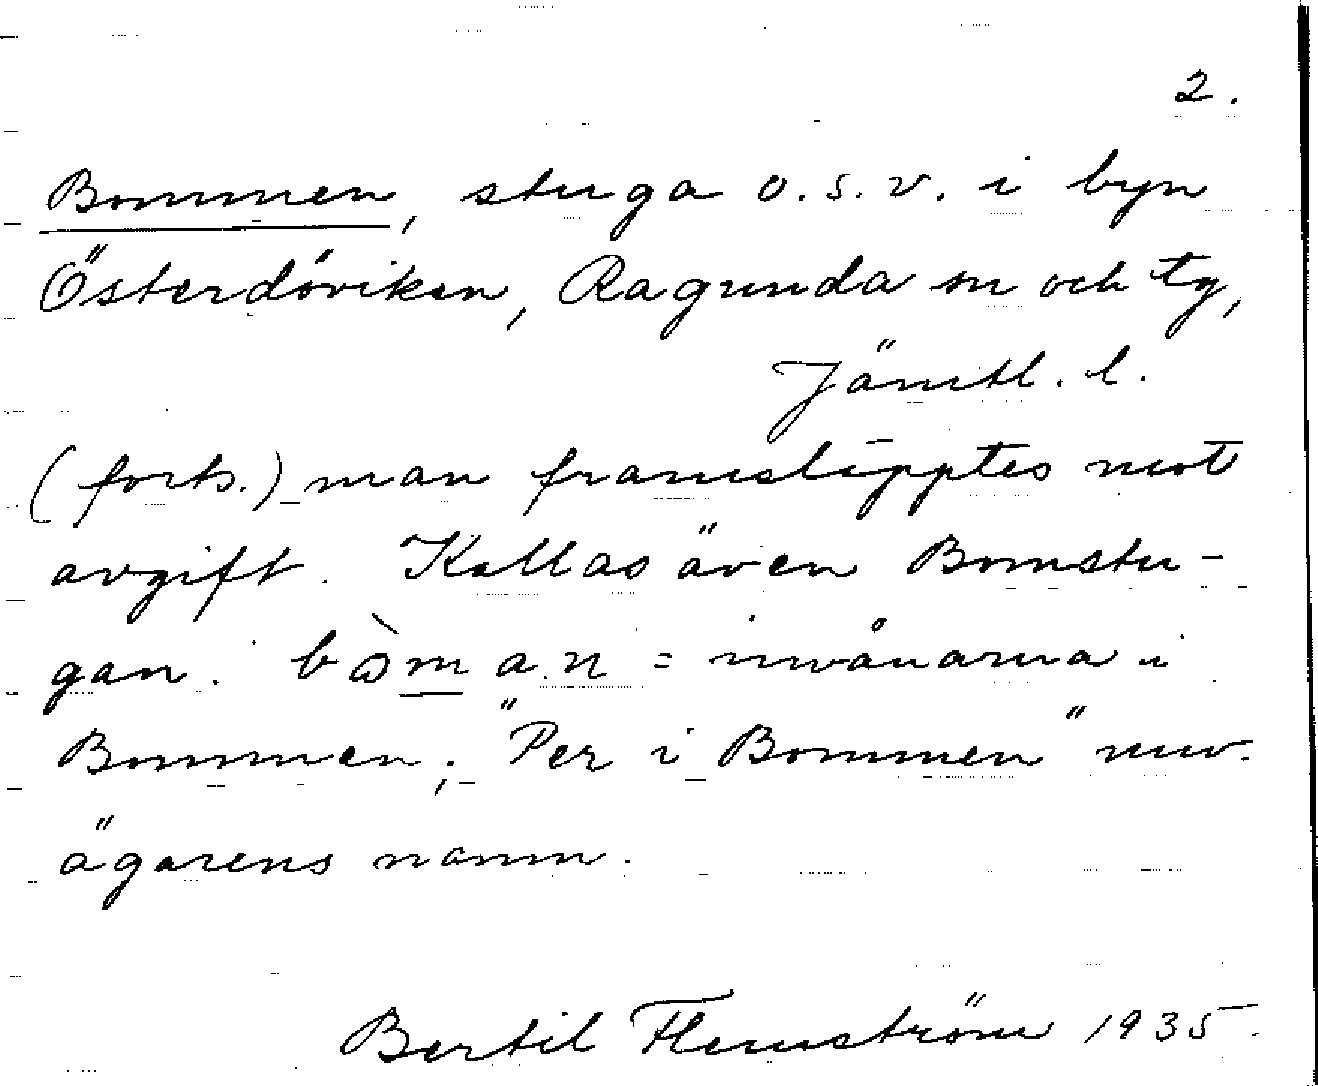 2.
Bommen, stuga o.s.v. i byn
Österdöviken, Ragunda sn och tg,
Jämtl. l.
(forts.) man framsläpptes mot
avgift. Kallas även Bomstu-
gan. bòman = invånarna i
Bommen; "Per i Bommen" nuv.
ägarens namn.
Bertil Flemström 1935.